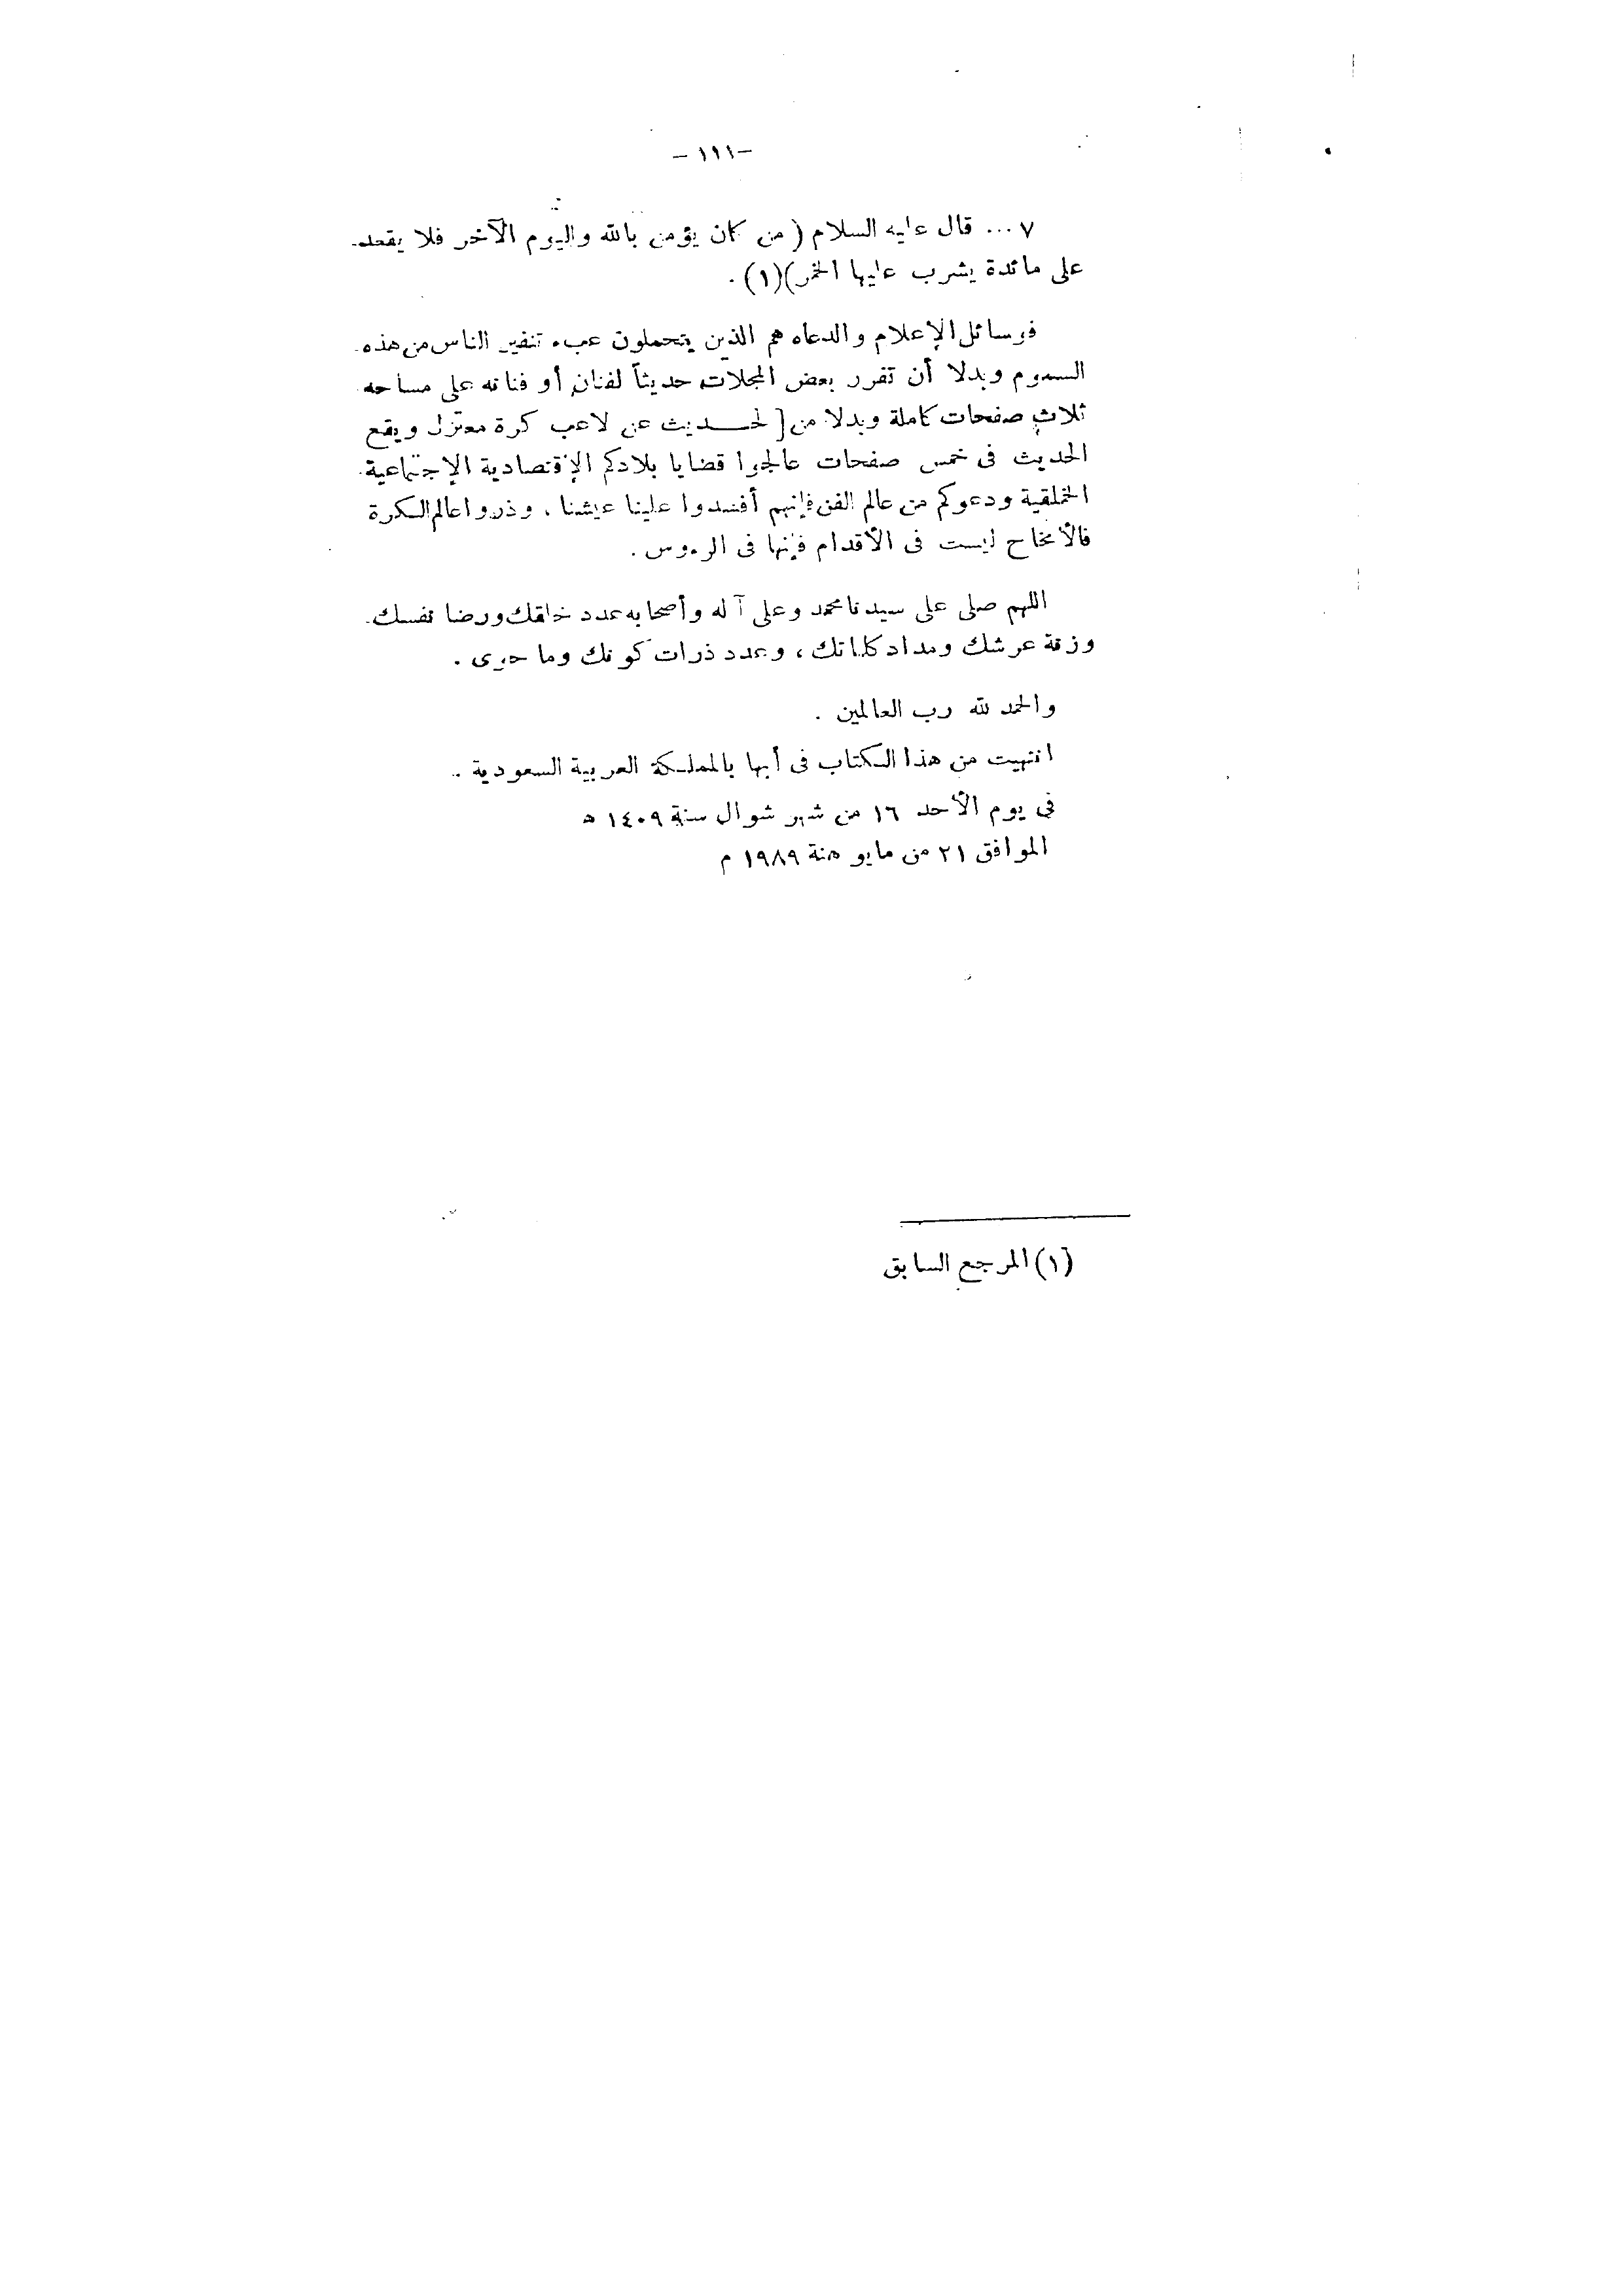 -١١١-
٧ ... قال عليه السلام (من كان يؤمن بالله واليوم الآخر فلا يقعد
على مائدة يشرب عليها الخمر)(١).
فوسائل الإعلام والدعاه هم الذين يتحملون عبء تنفير الناس من هذه
السموم وبدلا أن تفرر بعض المجلات حديثاً لفنان أو فنانه على مساحه
ثلاث صفحات كاملة وبدلا من الحديث عن لاعب كرة معتزل ويقع
الحديث فى خمس صفحات عالجوا قضايا بلادكم الإقتصادية الإجتماعية
الخلقية ودعوكم من عالم الفن فإنهم أفسدوا علينا عيشنا . وذروا عالم الكرة
فالأمخاخ ليست فى الأقدام فإنها فى الرءوس .
اللهم صلى على سيدنا محمد وعلى آله وأصحابه عدد خلقك ورضا نفسك
وزنة عرشك ومداد كلماتك ، وعدد ذرات كونك وما حوى .
والحمد لله رب العالمين .
انتهيت من هذا الكتاب فى أبها بالمملكة العربية السعودية ..
فى يوم الأحد ١٦ من شهر شوال سنة ١٤٠٩ ه
الموافق ٢١ من مايو سنة ١٩٨٩ م
(١) المرجع السابق